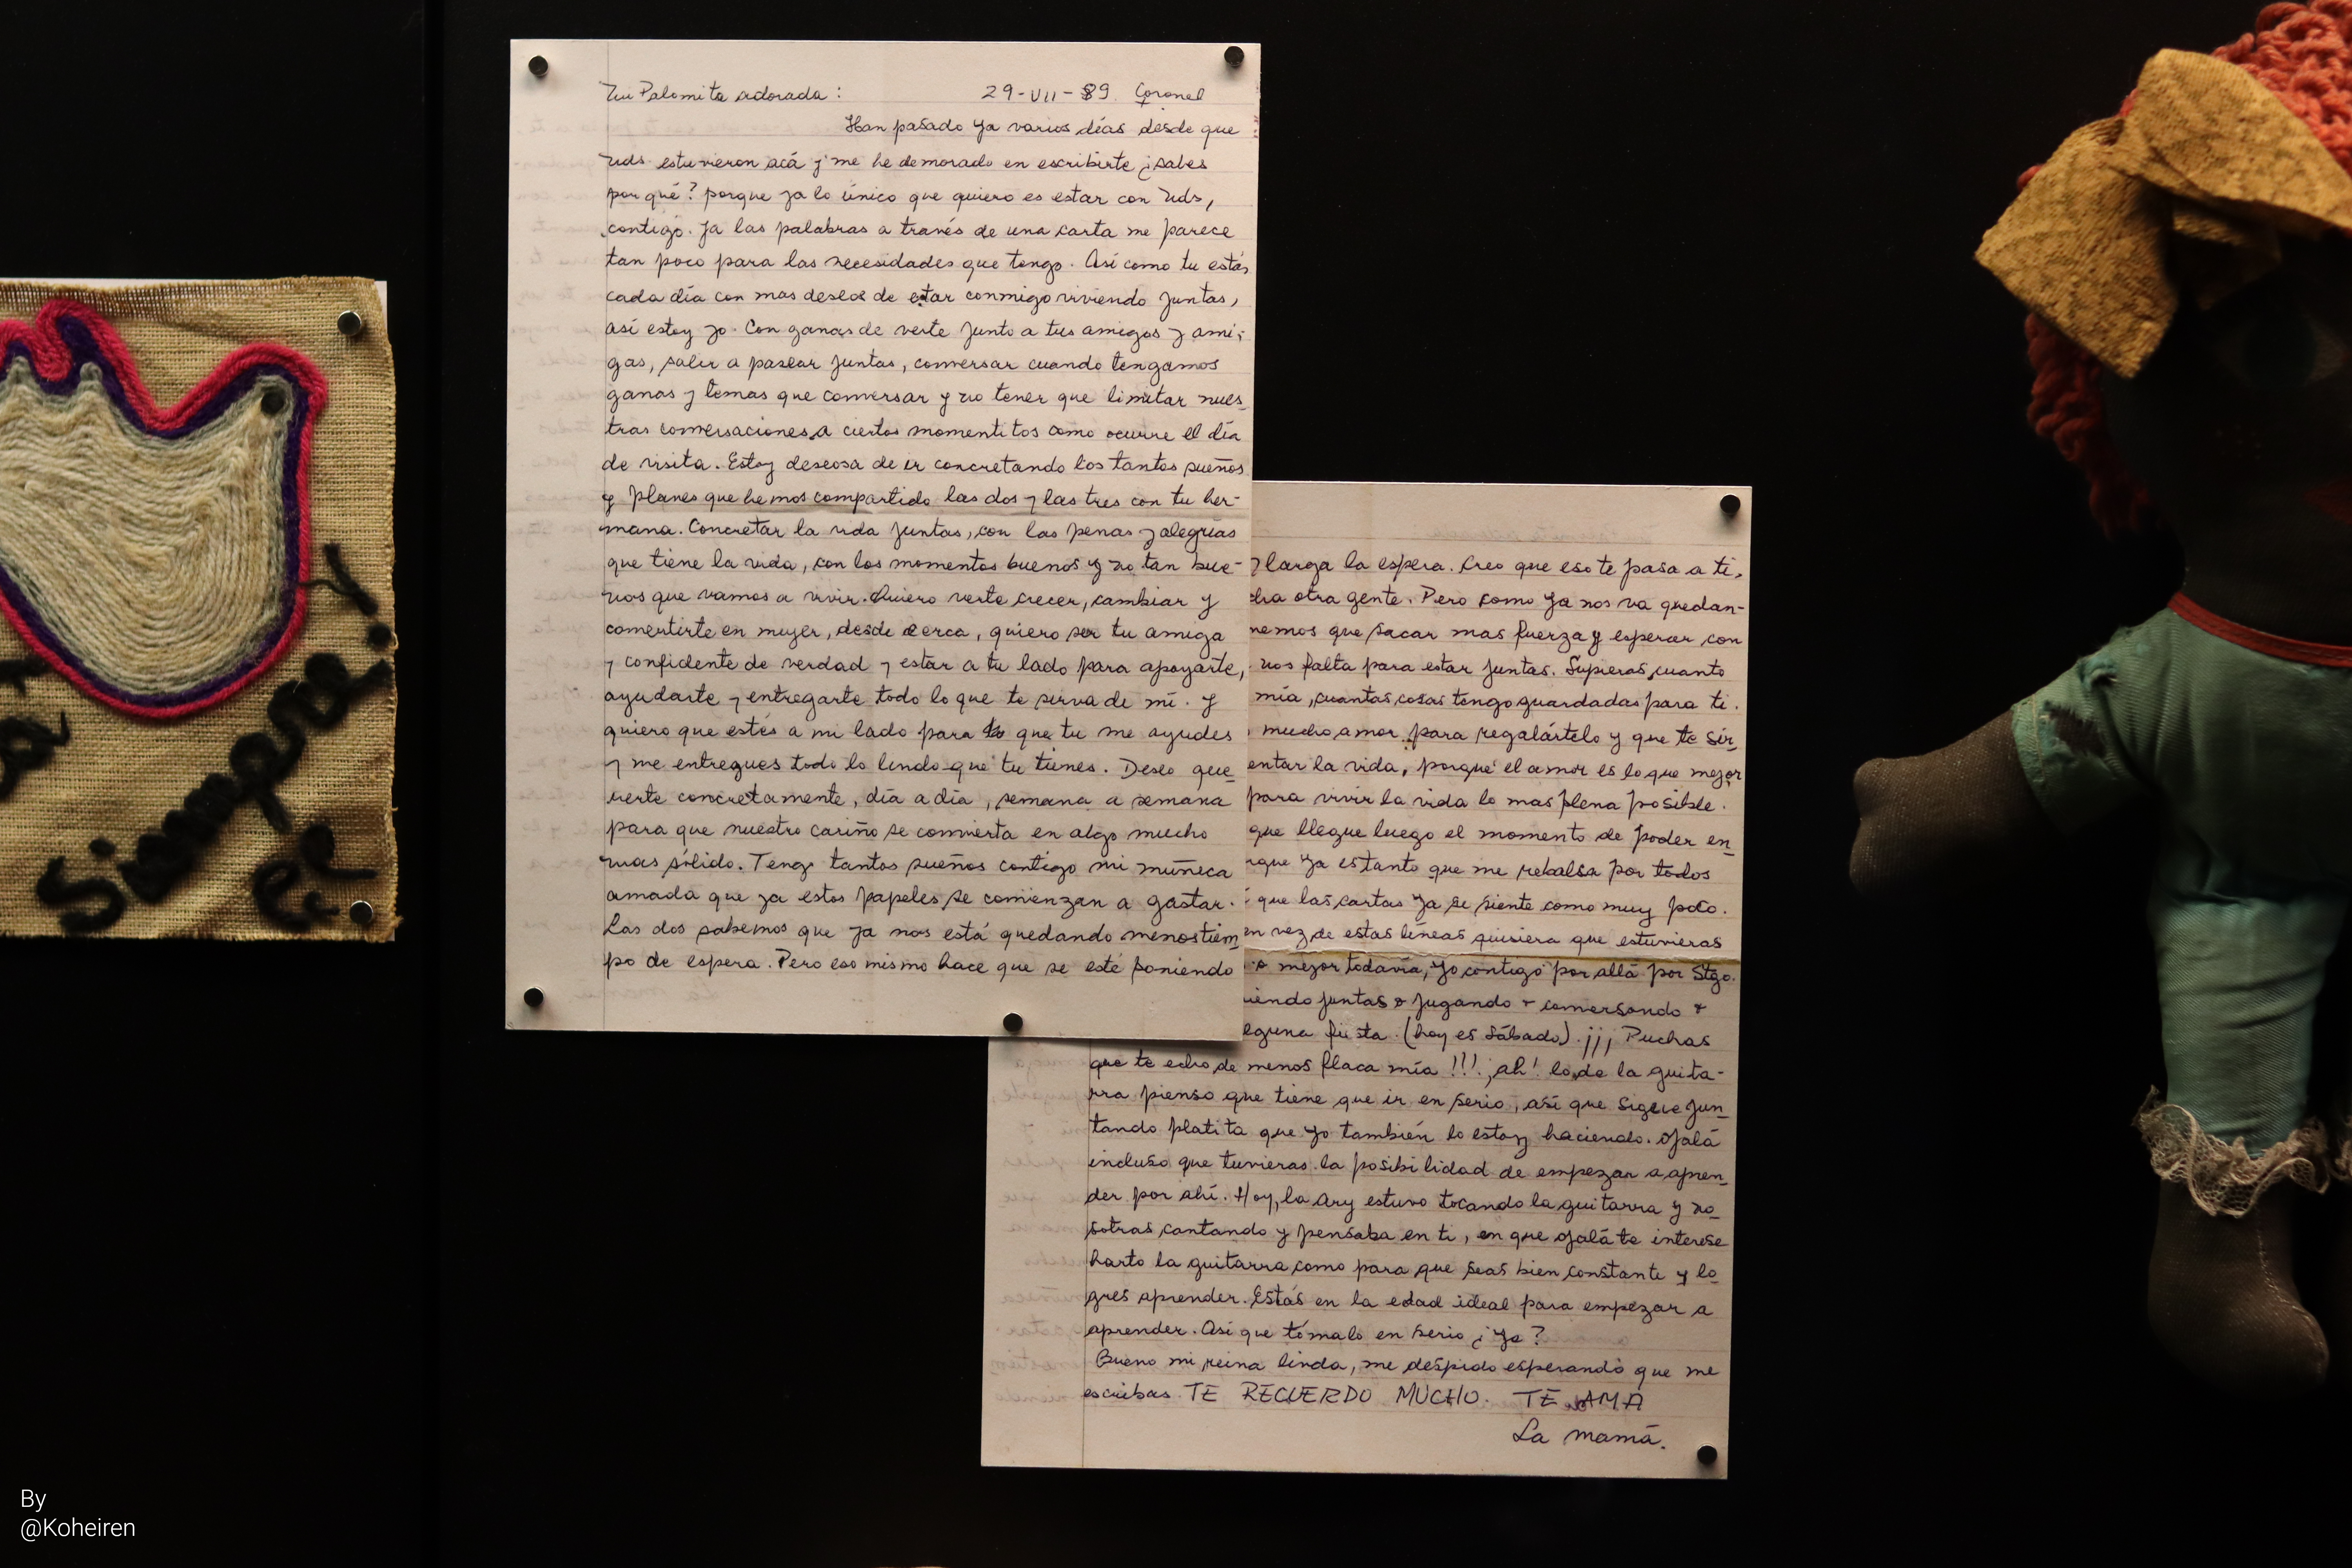 Palomita adorada: 29-VII-89 Coronel
Han pasado ya varios días desde que
uds estuvieron acá y me he demorado en escribirte ¿sabes
por qué? porque ya lo único que quiero es estar con Uds,
contigo. Ya las palabras a través de una carta me parece
tan poco para las necesidades que tengo. Así como tu estás
cada día con mas deseos de estar conmigo viviendo juntas,
así estoy yo. Con ganas de verte junto a tus amigos y ami-
gas, salir a pasear juntas, conversar cuando tengamos
ganas y temas que conversar y no tener que limitar nues_
tras conversaciones a ciertos momentitos como ocurre el día
de visita. Estoy deseosa de ir concretando los tantos sueños
y planes que hemos compartido las dos y las tres con tu her-
mana. Concretar la vida juntas, con las penas y alegrías
que tiene la vida, con los momentos buenos y no tan bue-
nos que vamos a vivir. Quiero verte crecer, cambiar y
convertirte en mujer, desde cerca, quiero ser tu amiga
y confidente de verdad y estar a tu lado para apoyarte,
ayudarte y entregarte todo lo que te sirva de mí. Y
quiero que estés a mi lado para que tu me ayudes
y me entregues todo lo lindo que tu tienes. Deseo que_
rerte concretamente, día a día, semana a semana
para que nuestro cariño se convierta en algo mucho
mas sólido. Tengo tantos sueños contigo mi muñeca
amada que ya estos papeles se comienzan a gastar.
Las dos sabemos que ya nos está quedando menos tiem_
po de espera. Pero eso mismo hace que se esté poniendo
y larga la espera. Creo que eso te pasa a ti,
otra gente. Pero como ya nos va quedan-
nemos que sacar mas fuerza y esperar con
nos falta para estar juntas. Supieras cuanto
mía, cuantas cosas tengo guardadas para ti.
mucho amor para regalártelo y que te sir_
entar la vida, porque el amor es lo que mejor
para vivir la vida lo mas plena posible.
que llegue luego el momento de poder en_
ya es tanto que me rebalsa por todos
que las cartas ya se siente como muy poco.
en vez de estas líneas quisiera que estuvieras
o mejor todavía, yo contigo por allá por Stgo.
iendo juntas o jugando o conversando o
fiesta. (hoy es Sábado). ¡¡¡ Puchas
que te echo de menos flaca mía !!!. ¡ah! lo de la guita-
rra pienso que tiene que ir en serio, así que sigue jun_
tando platita que yo también lo estoy haciendo. Ojalá
incluso que tuvieras la posibilidad de empezar a apren_
der por ahí. Hoy, la Ary estuvo tocando la guitarra y no_
sotras cantando y pensaba en ti, en que ojalá te interese
harto la guitarra como para que seas bien constante y lo_
gres aprender. Estás en la edad ideal para empezar a
aprender. Así que tómalo en serio ¿Ya?
Bueno mi reina linda, me despido esperando que me
escribas. TE RECUERDO MUCHO. TE AMA
La mamá.
Siempre
By
@Koheiren